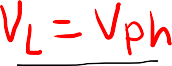 V_L = V_ph